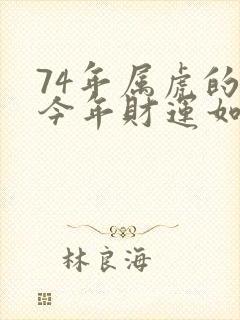 74年属虎的
今年財運如
林良海